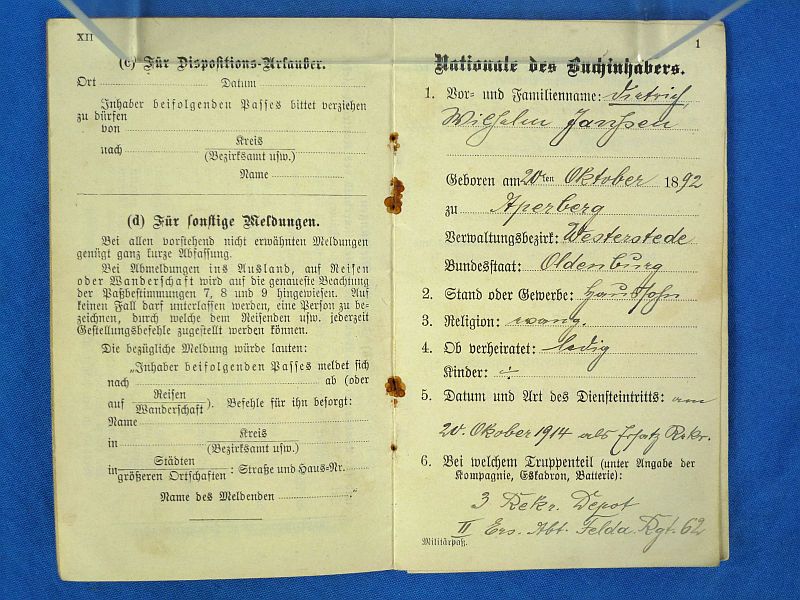 XII
(c) Für Dispositions-Urlauber.
Ort Datum
Inhaber beifolgenden Passes bittet verziehen
zu dürfen
von
nach Kreis
(Bezirksamt usw.)
Name
(d) Für sonstige Meldungen.
Bei allen vorstehend nicht erwähnten Meldungen
genügt ganz kurze Abfassung.
Bei Abmeldungen ins Ausland, auf Reisen
oder Wanderschaft wird auf die genaueste Beachtung
der Paßbestimmungen 7, 8 und 9 hingewiesen. Auf
keinen Fall darf unterlassen werden, eine Person zu be-
zeichnen, durch welche dem Reisenden usw. jederzeit
Gestellungsbefehle zugestellt werden können.
Die bezügliche Meldung würde lauten:
„Inhaber beifolgenden Passes meldet sich
nach ab (oder
auf Reisen
Wanderschaft). Befehle für ihn besorgt:
Name
in Kreis
(Bezirksamt usw.)
in Städten
größeren Ortschaften: Straße und Haus-Nr.
Name des Meldenden ."
1
Nationale des Buchinhabers.
1. Vor- und Familienname: Dietrich
Wilhelm Janssen
Geboren am 20ten Oktober 1892
zu Aperberg
Verwaltungsbezirk: Westerstede
Bundesstaat: Oldenburg
2. Stand oder Gewerbe: Haussohn
3. Religion: evang.
4. Ob verheiratet: ledig
Kinder: ÷
5. Datum und Art des Diensteintritts: am
20. Okober 1914 als Ersatz Rekr.
6. Bei welchem Truppenteil (unter Angabe der
Kompagnie, Eskadron, Batterie):
3 Rekr. Depot
II Ers. Abt. Felda. Rgt. 62
Militärpaß.